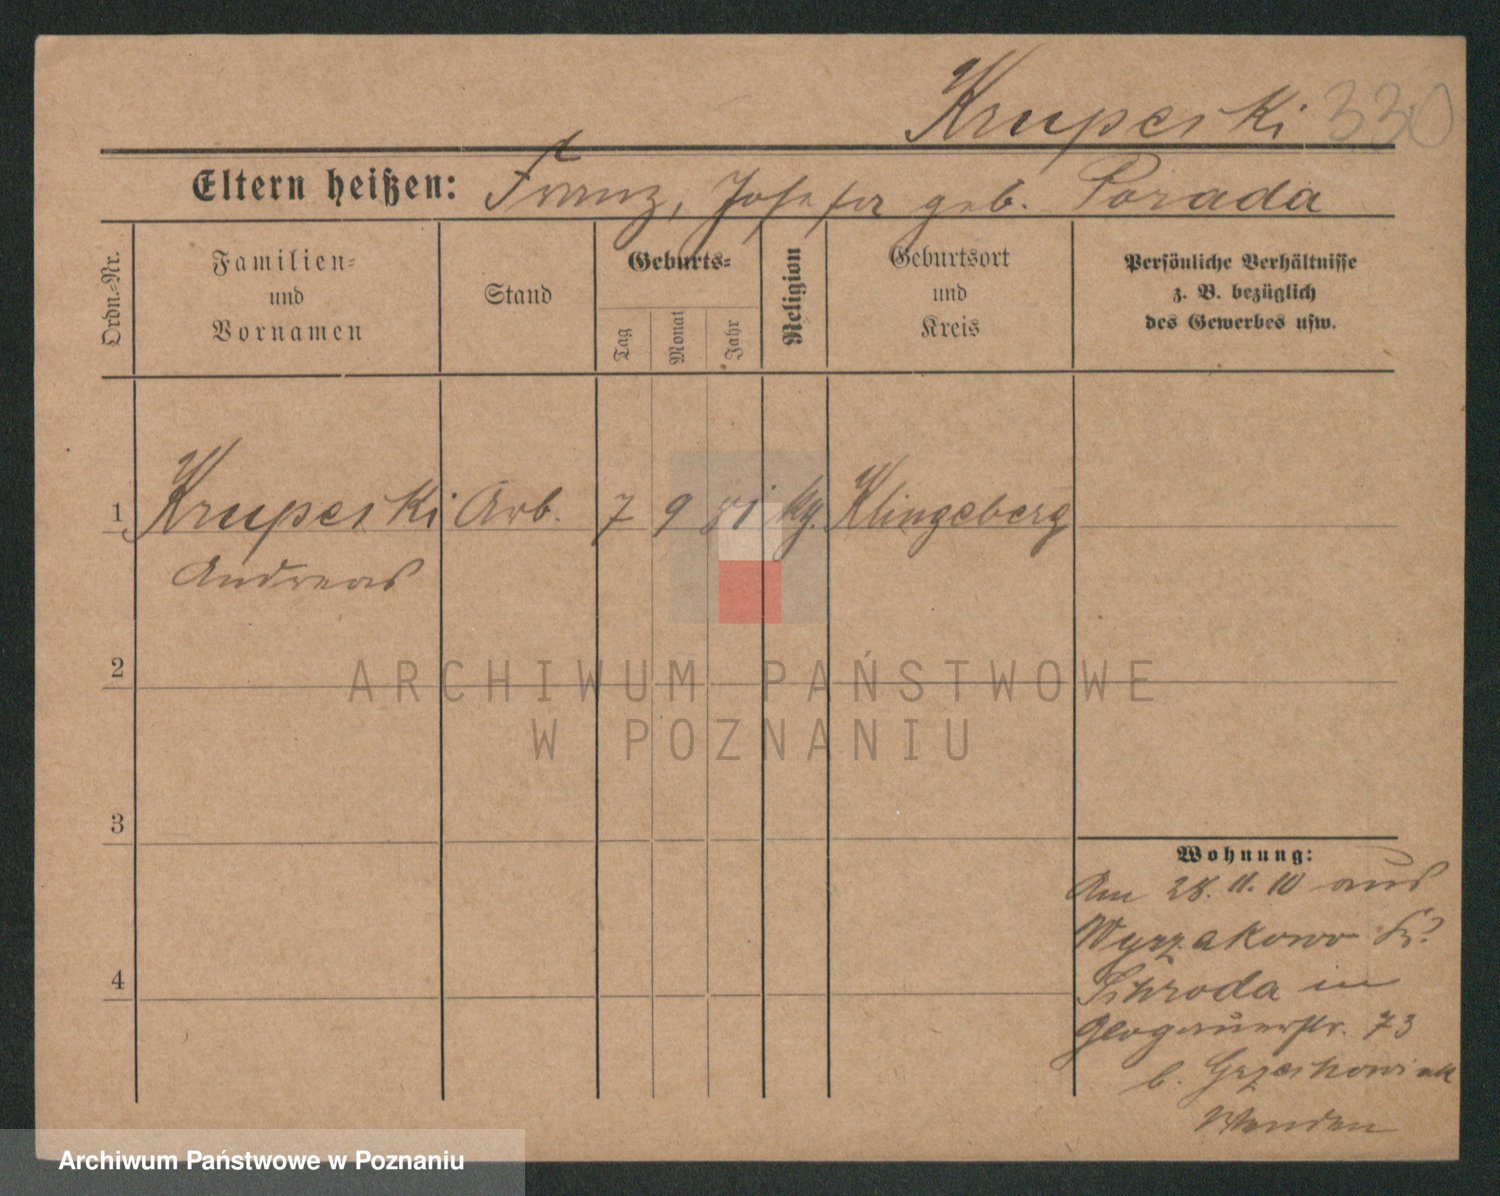 Krupeski 330
Eltern heißen: Franz, Josefa geb. Porada
Ordn.-Nr.
Familien-
und
Vornamen
Stand
Geburts-
Tag
Monat
Jahr
Religion
Geburtsort
und
Kreis
Persönliche Verhältnisse
z. B. bezüglich
des Gewerbes usw.
1 Krupeski Arb. 7 9 91 kg. Klingeberg
Andreas
2
3
4
Wohnung:
Am 28.11.10 aus
Wyrzakowo Kr.
Schroda in
Glogauerstr. 73
b. Grzeskowiak
Wenden
ARCHIWUM PAŃSTWOWE
W POZNANIU
Archiwum Państwowe w Poznaniu